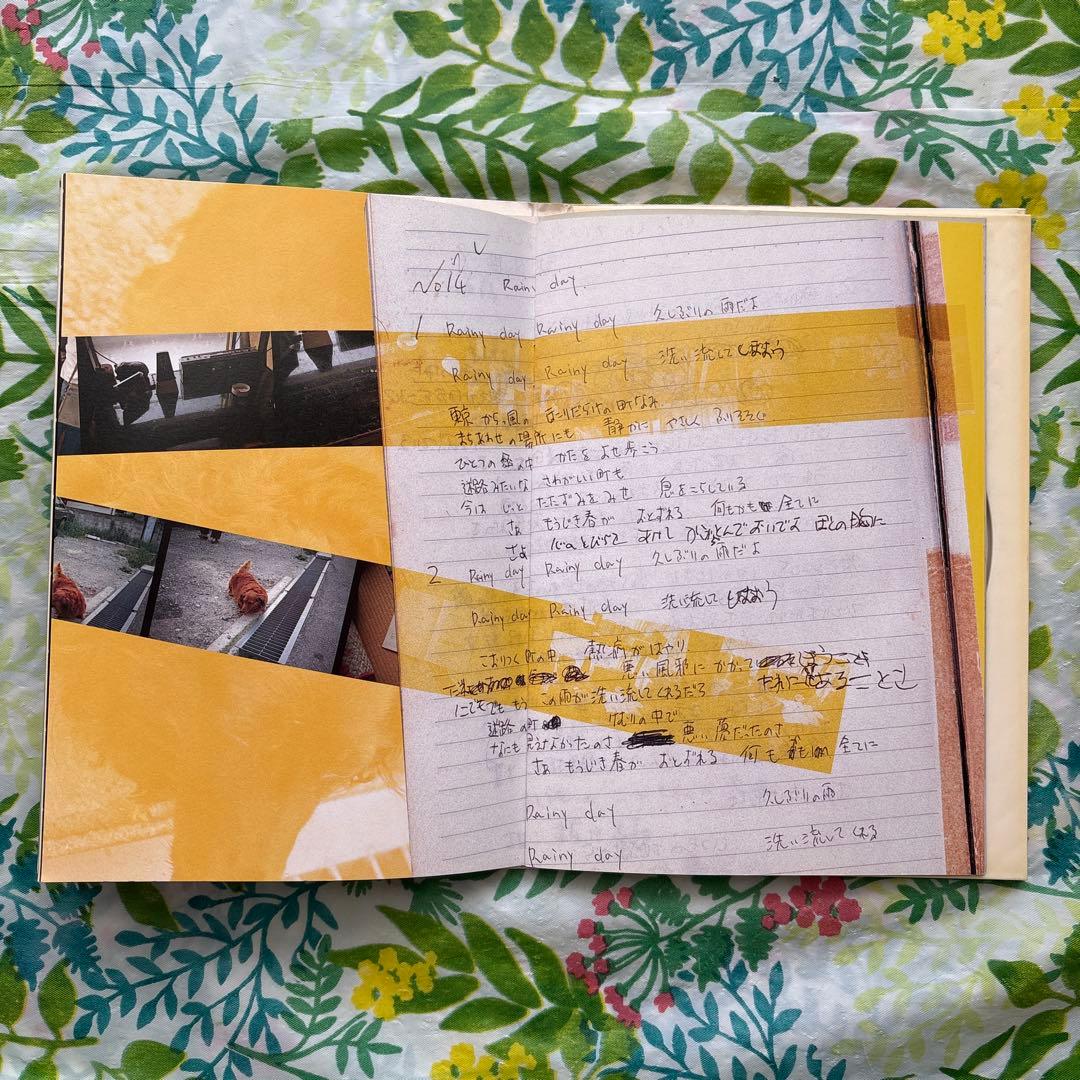 No.14 Rainy day.
1 Rainy day Rainy day 久しぶりの雨だよ
Rainy day Rainy day 洗い流してしまおう
から 風の だらけの町なみ
まちあわせの場所にも 静かに やさしく ふりそそぐ
ひとつの 傘の中 かたをよせ歩こう
迷路みたいな さわがしい町も
今は じっと たたずみをみせ 息をこらしている
さぁ もうじき春が おとずれる 何もかも 全てに
さぁ とんでおいで 胸に
2 Rainy day Rainy day 久しぶりの雨だよ
Rainy day Rainy day 洗い流してしまおう
町の中 熱病がはやり
悪い風邪にかかって しまうことも
だれにでもあることさ
でももう この雨が洗い流してくれるだろう
迷路の町 けむりの中で
なにも見えなかったのさ 悪い夢だったのさ
さぁ もうじき春が おとずれる 何もかも 全てに
Rainy day ････ 久しぶりの雨
Rainy day 洗い流してくれる